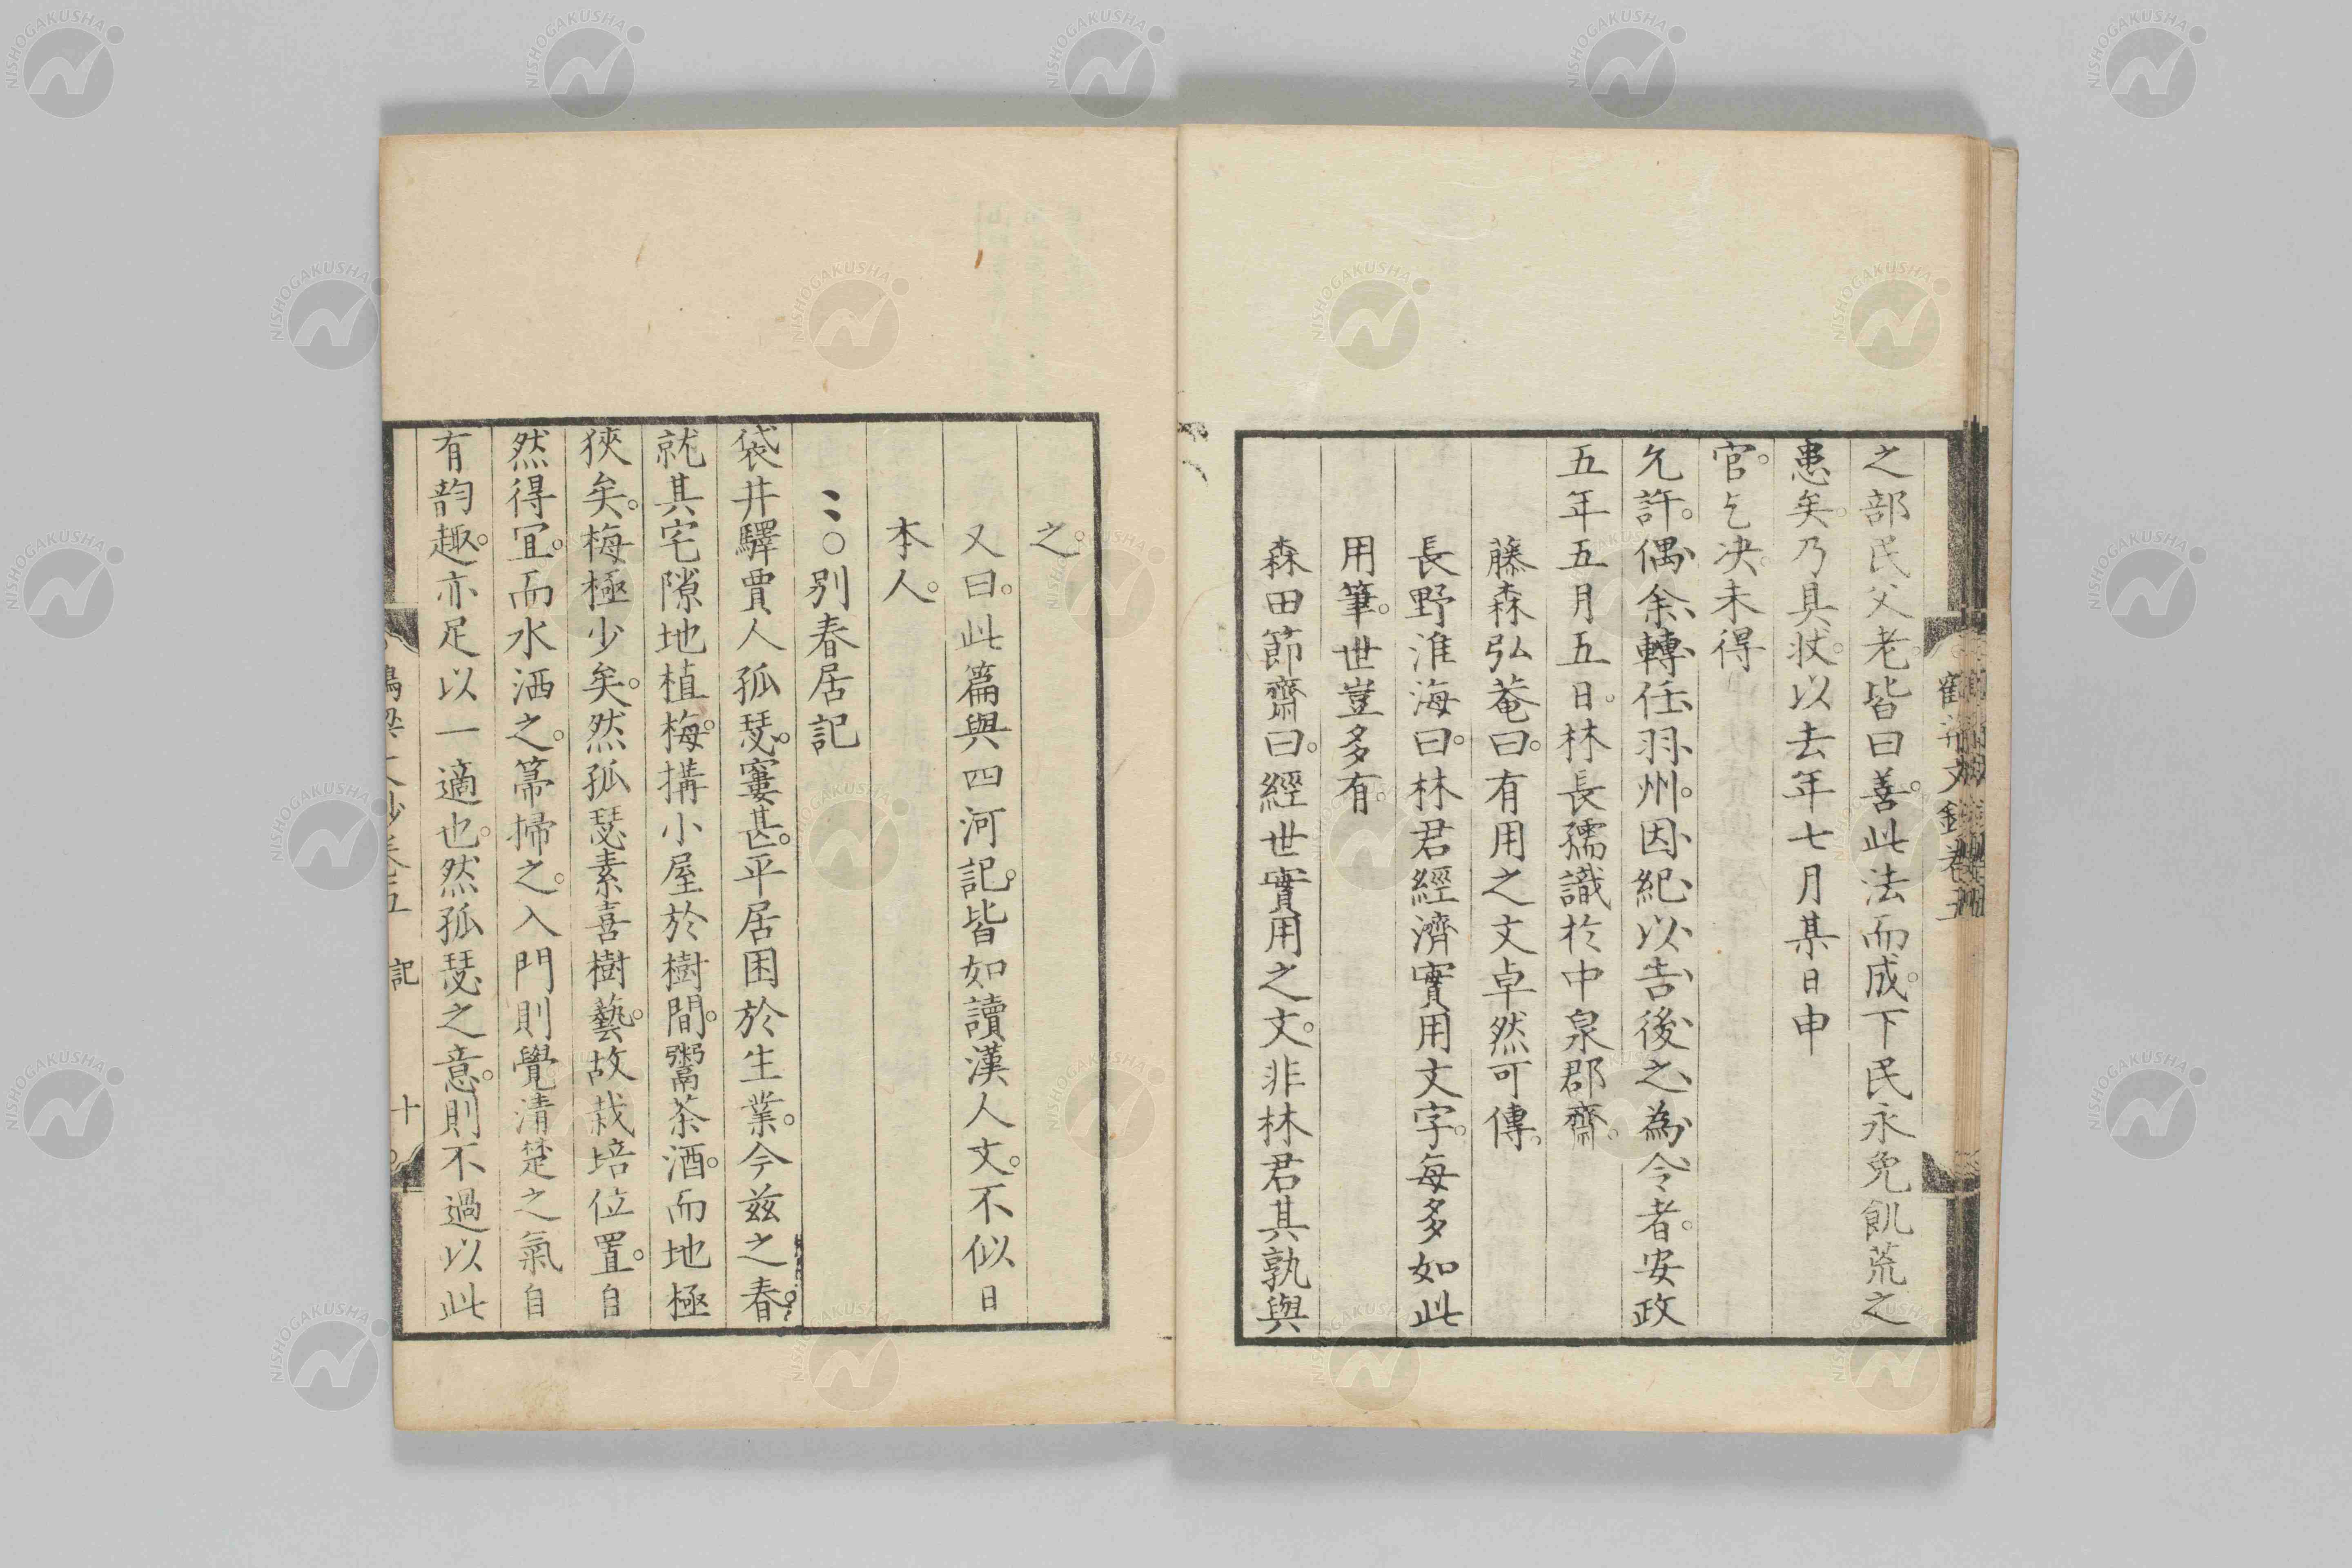 之部民父老皆曰善。此法而成。下民永免飢荒之
患矣。乃具狀。以去年七月某日申
官。乞决。未得
允許。偶余轉任羽州。因紀以告後之為令者。安政
五年五月五日。林長孺識於中泉郡齋。
藤森弘菴曰。有用之文卓然可傳。
長野淮海曰。林君經濟實用文字。每多如此
用筆。世豈多有。
森田節齋曰。經世實用之文。非林君其孰與
之。
又曰。此篇與四河記。皆如讀漢人文。不似日
本人。
〻○別春居記
袋井驛賈人孤瑟。窶甚。平居困於生業。今茲之春。
就其宅隙地植梅。搆小屋於樹間。鬻茶酒。而地極
狹矣。梅極少矣。然孤瑟素喜樹藝。故栽培位置。自
然得宜。而水洒之。箒掃之。入門則覺清楚之氣自
有韵趣。亦足以一適也。然孤瑟之意。則不過以此
記
十
NISHOGAKUSHA